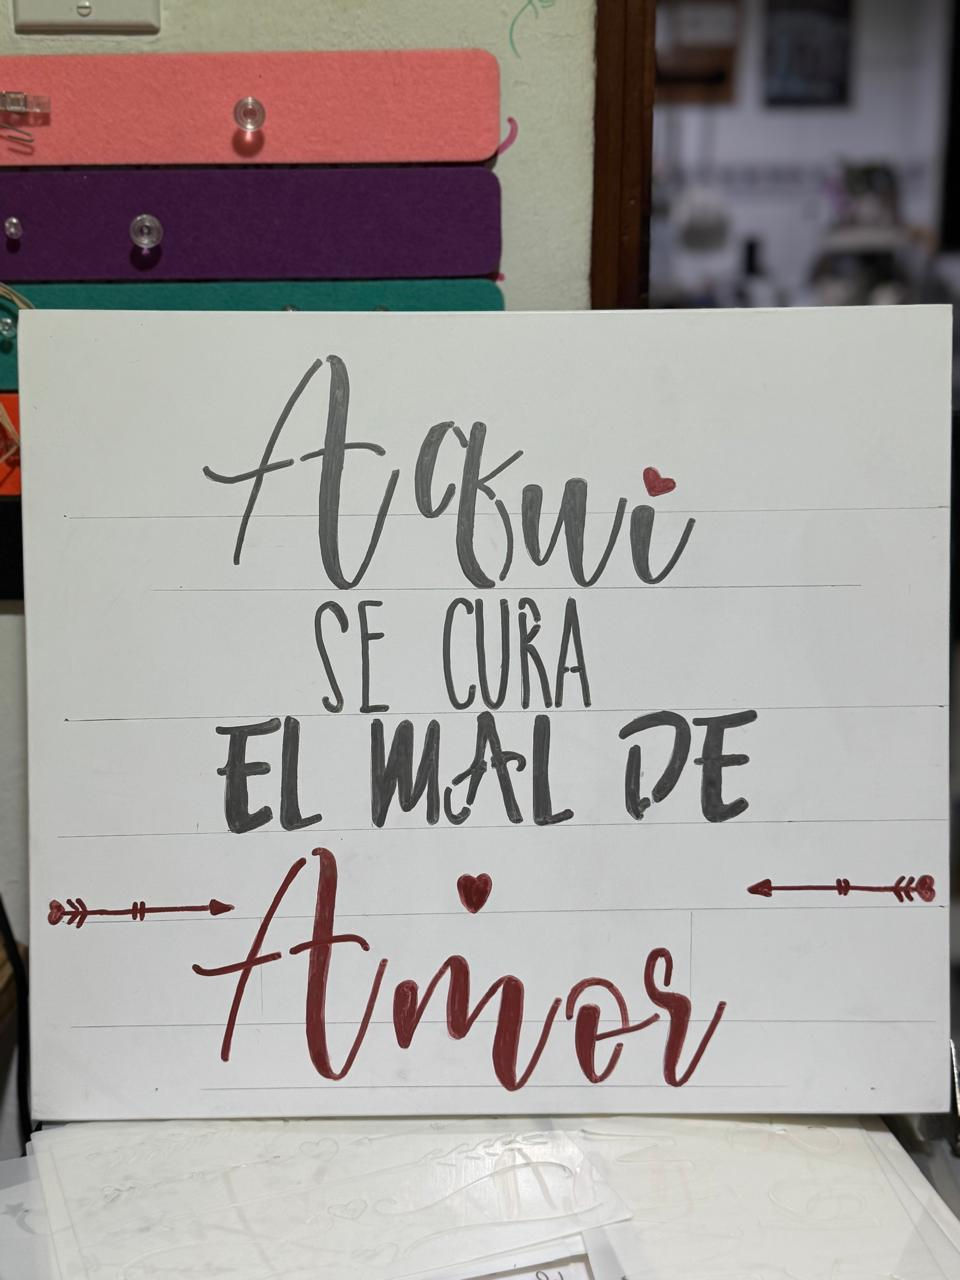 Aqui
SE CURA
EL MAL DE
Amor